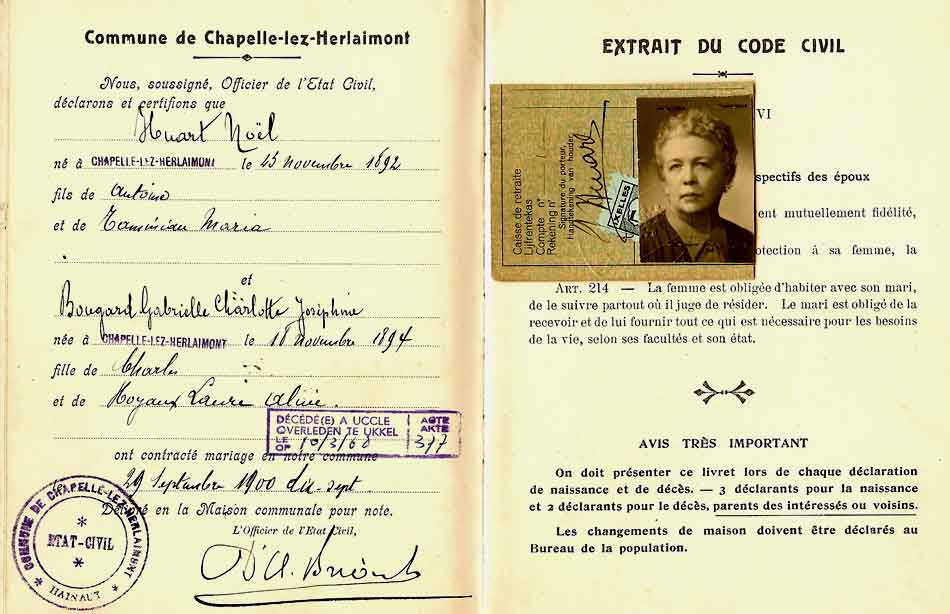 Commune de Chapelle-lez-Herlaimont
Nous, soussigné, Officier de l'Etat Civil,
déclarons et certifions que
Huart Noël
né à CHAPELLE-LEZ-HERLAIMONT le novembre 1892
fils de Antoine
et de Maria
et
Bougard Gabrielle Charlotte Joséphine
née à CHAPELLE-LEZ-HERLAIMONT le 18 novembre 1894
fille de Charles
et de Hoyaux Laure Aline.
DÉCÉDÉ(E) A UCCLE
OVERLEDEN TE UKKEL
LE
OP 10/3/68
ACTE
AKTE
377
ont contracté mariage en notre commune
29 Septembre 1900 dix-sept.
Délivré en la Maison communale pour note.
L'Officier de l'Etat Civil,
COMMUNE DE CHAPELLE-LEZ-HERLAIMONT
ETAT-CIVIL
HAINAUT
EXTRAIT DU CODE CIVIL
VI
Caisse de retraite
Lijfrentekas
Compte n°
Rekening n°
Signature du porteur,
Handtekening van houder,
Huart
IXELLES
spectifs des époux
ent mutuellement fidélité,
otection à sa femme, la
ART. 214 — La femme est obligée d'habiter avec son mari,
de le suivre partout où il juge de résider. Le mari est obligé de la
recevoir et de lui fournir tout ce qui est nécessaire pour les besoins
de la vie, selon ses facultés et son état.
AVIS TRÈS IMPORTANT
On doit présenter ce livret lors de chaque déclaration
de naissance et de décès. — 3 déclarants pour la naissance
et 2 déclarants pour le décès, parents des intéressés ou voisins.
Les changements de maison doivent être déclarés au
Bureau de la population.